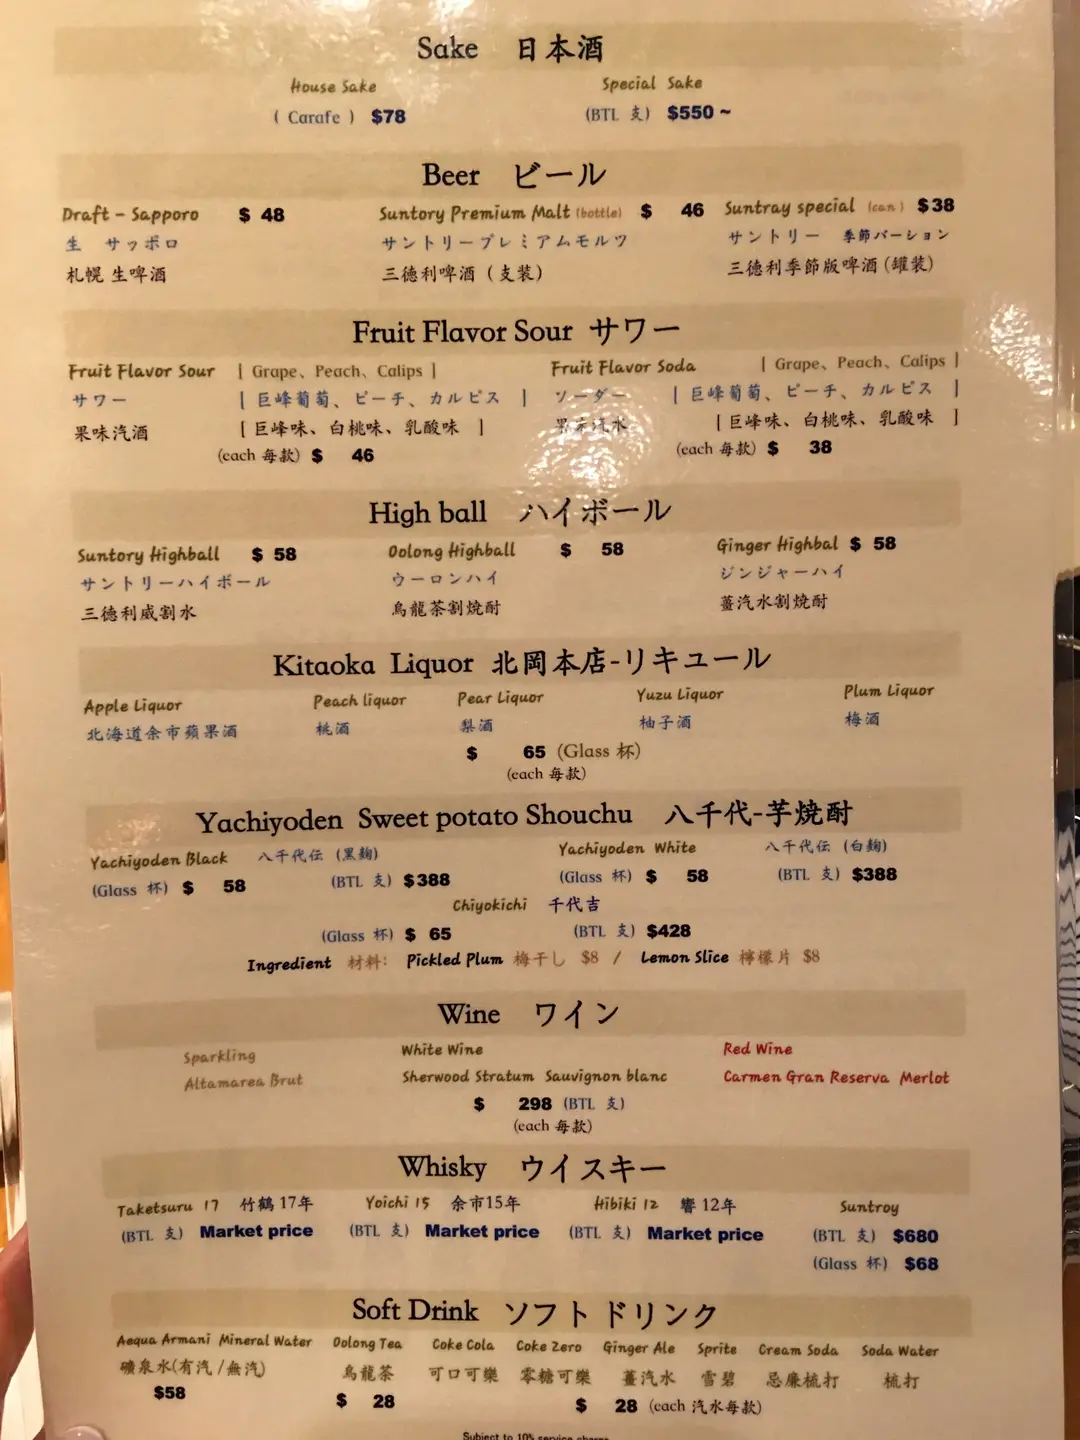 Sake 日本酒
House Sake Special Sake
( Carafe ) $78 (BTL 支) $550 ~
Beer ビール
Draft - Sapporo $ 48 Suntory Premium Malt (bottle) $ 46 Suntray special (can) $38
生 サッポロ サントリープレミアムモルツ サントリー 季節バーション
札幌 生啤酒 三德利啤酒 (支装) 三德利季節版啤酒 (罐装)
Fruit Flavor Sour サワー
Fruit Flavor Sour | Grape、Peach、Calips | Fruit Flavor Soda | Grape、Peach、Calips |
サワー [ 巨峰葡萄、ピーチ、カルピス ] ソーダー [ 巨峰葡萄、ピーチ、カルピス ]
果味汽酒 [ 巨峰味、白桃味、乳酸味 ] 果味汽水 [ 巨峰味、白桃味、乳酸味 ]
(each 每款) $ 46 (each 每款) $ 38
High ball ハイボール
Suntory Highball $ 58 Oolong Highball $ 58 Ginger Highbal $ 58
サントリーハイボール ウーロンハイ ジンジャーハイ
三德利威割水 烏龍茶割焼酎 薑汽水割焼酎
Kitaoka Liquor 北岡本店-リキュール
Apple Liquor Peach liquor Pear Liquor Yuzu Liquor Plum Liquor
北海道余市蘋果酒 桃酒 梨酒 柚子酒 梅酒
$ 65 (Glass 杯)
(each 每款)
Yachiyoden Sweet potato Shouchu 八千代-芋焼酎
Yachiyoden Black 八千代伝 (黒麹) Yachiyoden White 八千代伝 (白麹)
(Glass 杯) $ 58 (BTL 支) $388 (Glass 杯) $ 58 (BTL 支) $388
Chiyokichi 千代吉
(Glass 杯) $ 65 (BTL 支) $428
Ingredient 材料: Pickled Plum 梅干し $8 / Lemon Slice 檸檬片 $8
Wine ワイン
Sparkling White Wine Red Wine
Altamarea Brut Sherwood Stratum Sauvignon blanc Carmen Gran Reserva Merlot
$ 298 (BTL 支)
(each 每款)
Whisky ウイスキー
Taketsuru 17 竹鶴 17年 Yoichi 15 余市15年 Hibiki 12 響 12年 Suntroy
(BTL 支) Market price (BTL 支) Market price (BTL 支) Market price (BTL 支) $680
(Glass 杯) $68
Soft Drink ソフトドリンク
Aequa Armani Mineral Water Oolong Tea Coke Cola Coke Zero Ginger Ale Sprite Cream Soda Soda Water
礦泉水(有汽/無汽) 烏龍茶 可口可樂 零糖可樂 薑汽水 雪碧 忌廉梳打 梳打
$58 $ 28 $ 28 (each 汽水每款)
Subject to 10% service charge